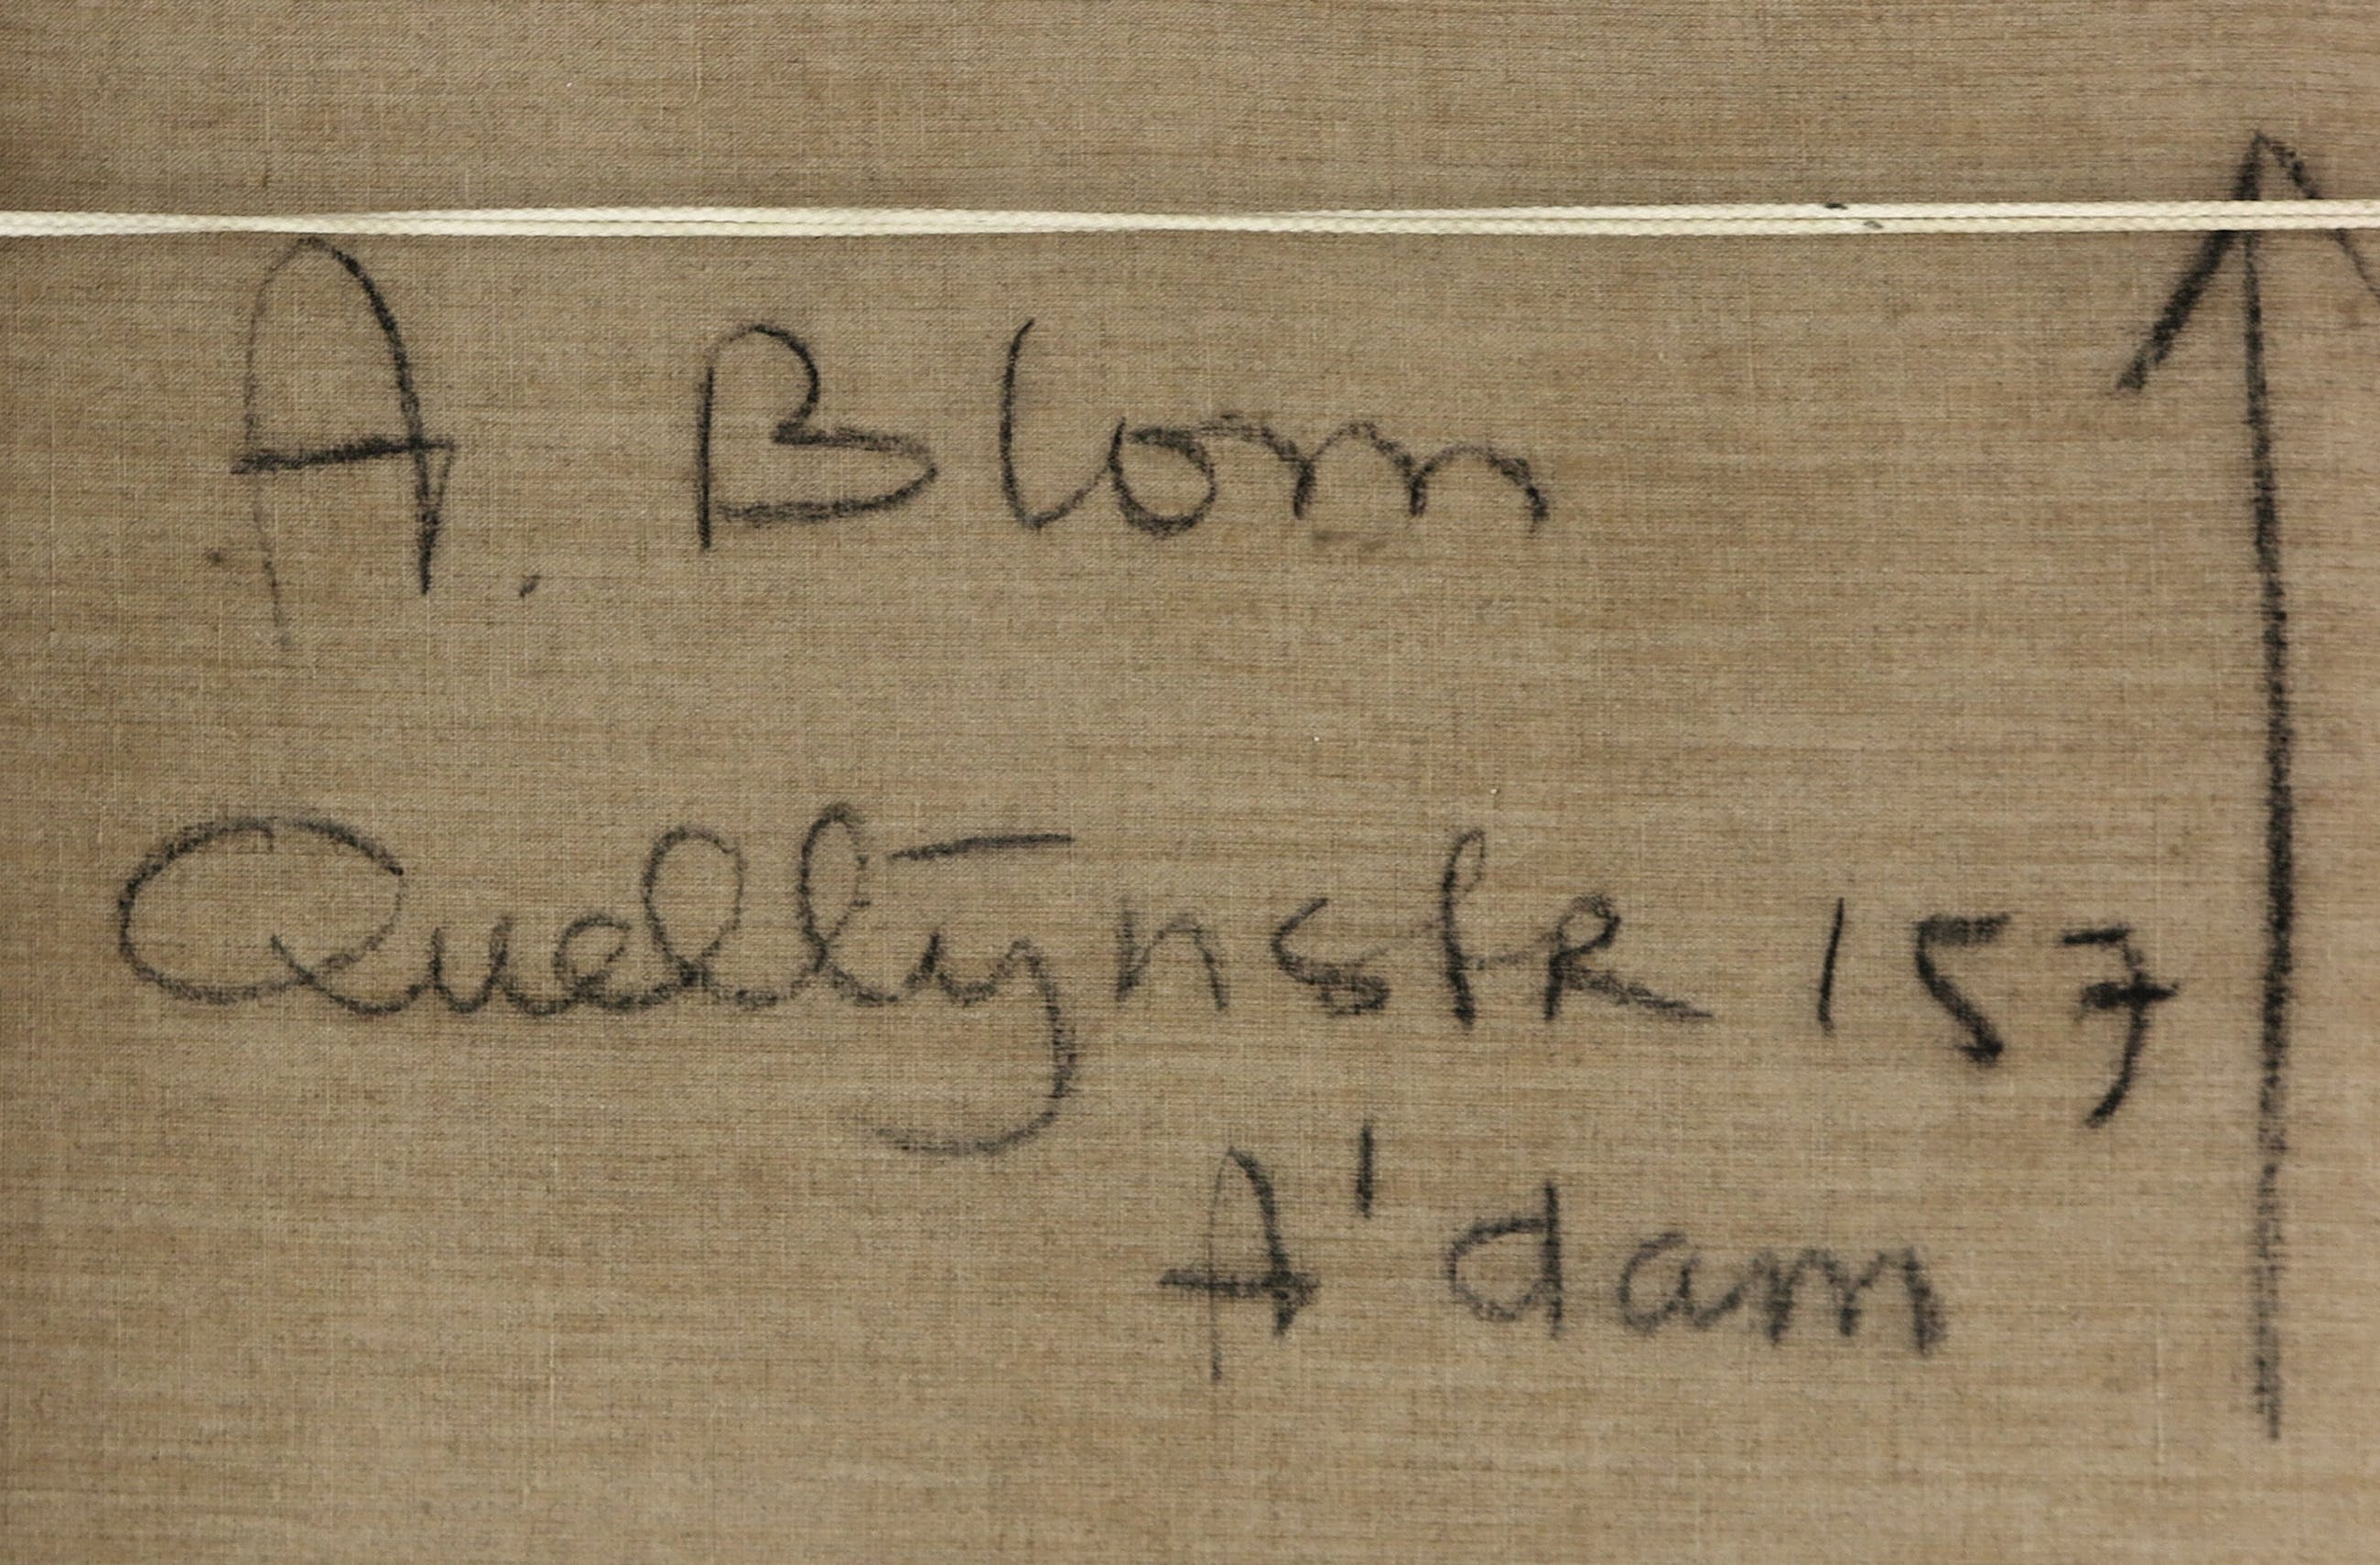 A. Blom
Quellijnstr 157
A'dam